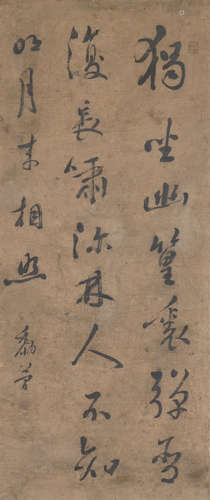 獨坐幽篁裏彈琴
復長嘯深林人不知
明月来相照